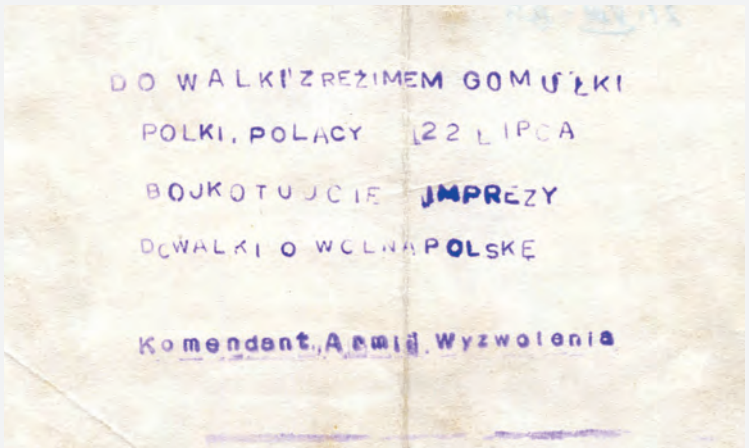 DO WALKI Z REŻIMEM GOMUŁKI
POLKI, POLACY 22 LIPCA
BOJKOTUJCIE IMPREZY
DO WALKI O WOLNA POLSKĘ
Komendant "Armii Wyzwolenia